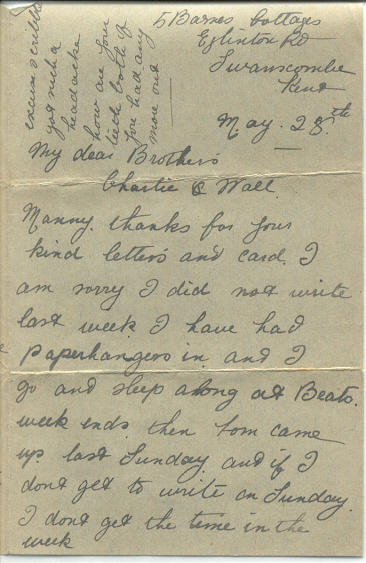 5 Barnes Cottages
Eglinton Rd
Swanscombe
Kent
May. 28th
My dear Brothers
Charlie & Wall.
Manny. thanks for your
kind letters and card. I
am sorry I did not write
last week I have had
paperhangers in and I
go and sleep along at Beats.
week ends. then Tom came
up last Sunday. and if I
dont get to write on Sunday.
I dont get the time in the
week
excuse scribble
got such a
headache
how are your
teeth both of
you had any
more out